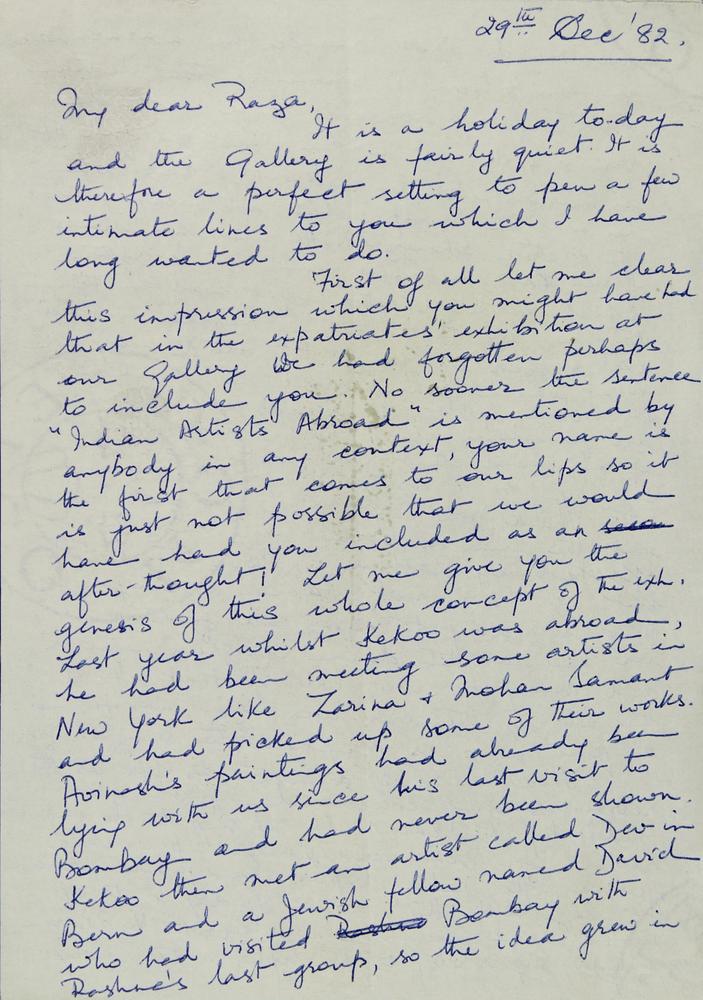 29th Dec '82.
My dear Raza,
It is a holiday to-day
and the Gallery is fairly quiet. It is
therefore a perfect setting to pen a few
intimate lines to you which I have
long wanted to do.
First of all let me clear
this impression which you might have had
that in the expatriates' exhibition at
our Gallery we had forgotten perhaps
to include you. No sooner the sentence
"Indian Artists Abroad" is mentioned by
anybody in any context, your name is
the first that comes to our lips so it
is just not possible that we would
have had you included as an
after-thought! Let me give you the
genesis of this whole concept of the exh.
Last year whilst Kekoo was abroad,
he had been meeting some artists in
New York like Zarina + Mohan Samant
and had picked up some of their works.
Avinash's paintings had already been
lying with us since his last visit to
Bombay and had never been shown.
Kekoo then met an artist called Dev in
Bern and a Jewish fellow named David
who had visited Bombay with
Rashna's last group, so the idea grew in